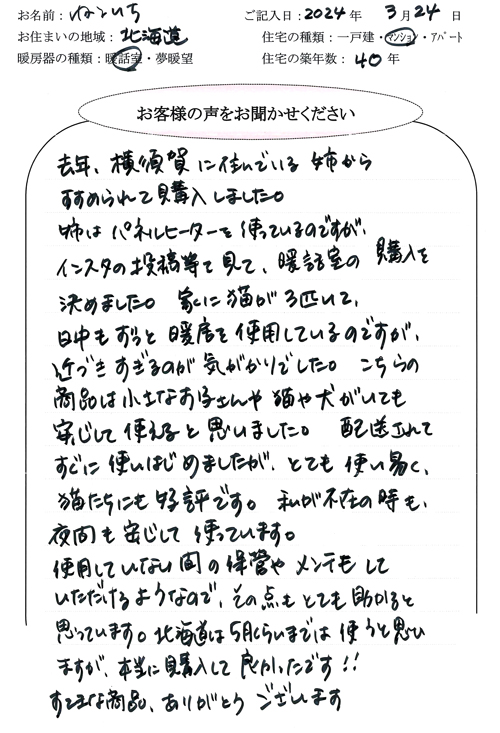 お名前： ねこいち
ご記入日：2024年 3月24日
お住まいの地域：北海道
住宅の種類：一戸建・マンション・アパート
暖房器の種類：暖話室・夢暖望
住宅の築年数：40年
お客様の声をお聞かせください
去年、横須賀に住んでいる姉から
すすめられて購入しました。
姉はパネルヒーターを使っているのですが、
インスタの投稿等で見て、暖話室の購入を
決めました。家に猫が3匹いて、
日中もずっと暖房を使用しているのですが、
近づきすぎるのが気がかりでした。こちらの
商品は小さなお子さんや猫や犬がいても
安心して使えると思いました。配送されて
すぐに使いはじめましたが、とても使い易く、
猫たちにも好評です。私が不在の時も、
夜間も安心して使っています。
使用していない間の保管やメンテもして
いただけるようなので、その点もとても助かると
思っています。北海道は5月くらいまでは使うと思い
ますが、本当に購入して良かったです!!
すてきな商品、ありがとうございます